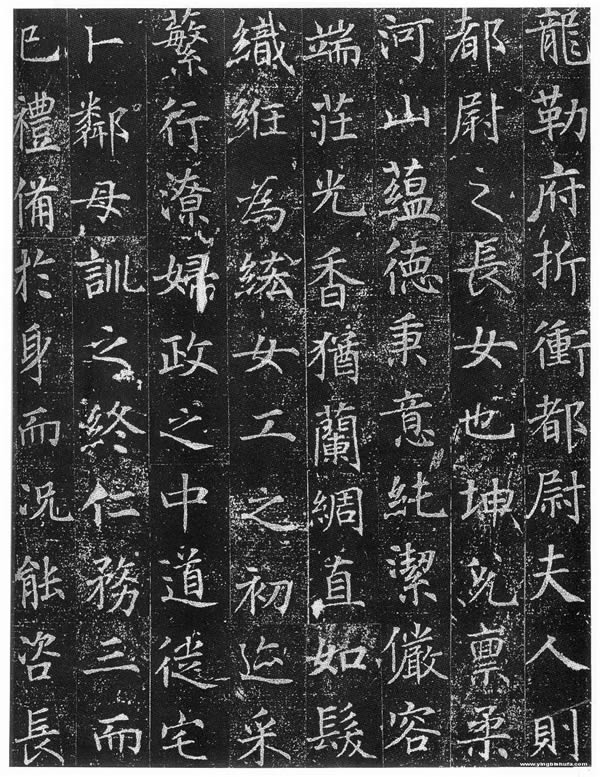 龍勒府折衝都尉夫人則
都尉之長女也坤兊禀柔
河山蘊德秉意純潔儼容
端莊光香猶蘭綢直如髮
織絍為女工之初迹采
蘩行潦婦政之中道徙宅
卜鄰母訓之終仁務三而
已禮備於身而况能咨長
www.yingbishufa.com